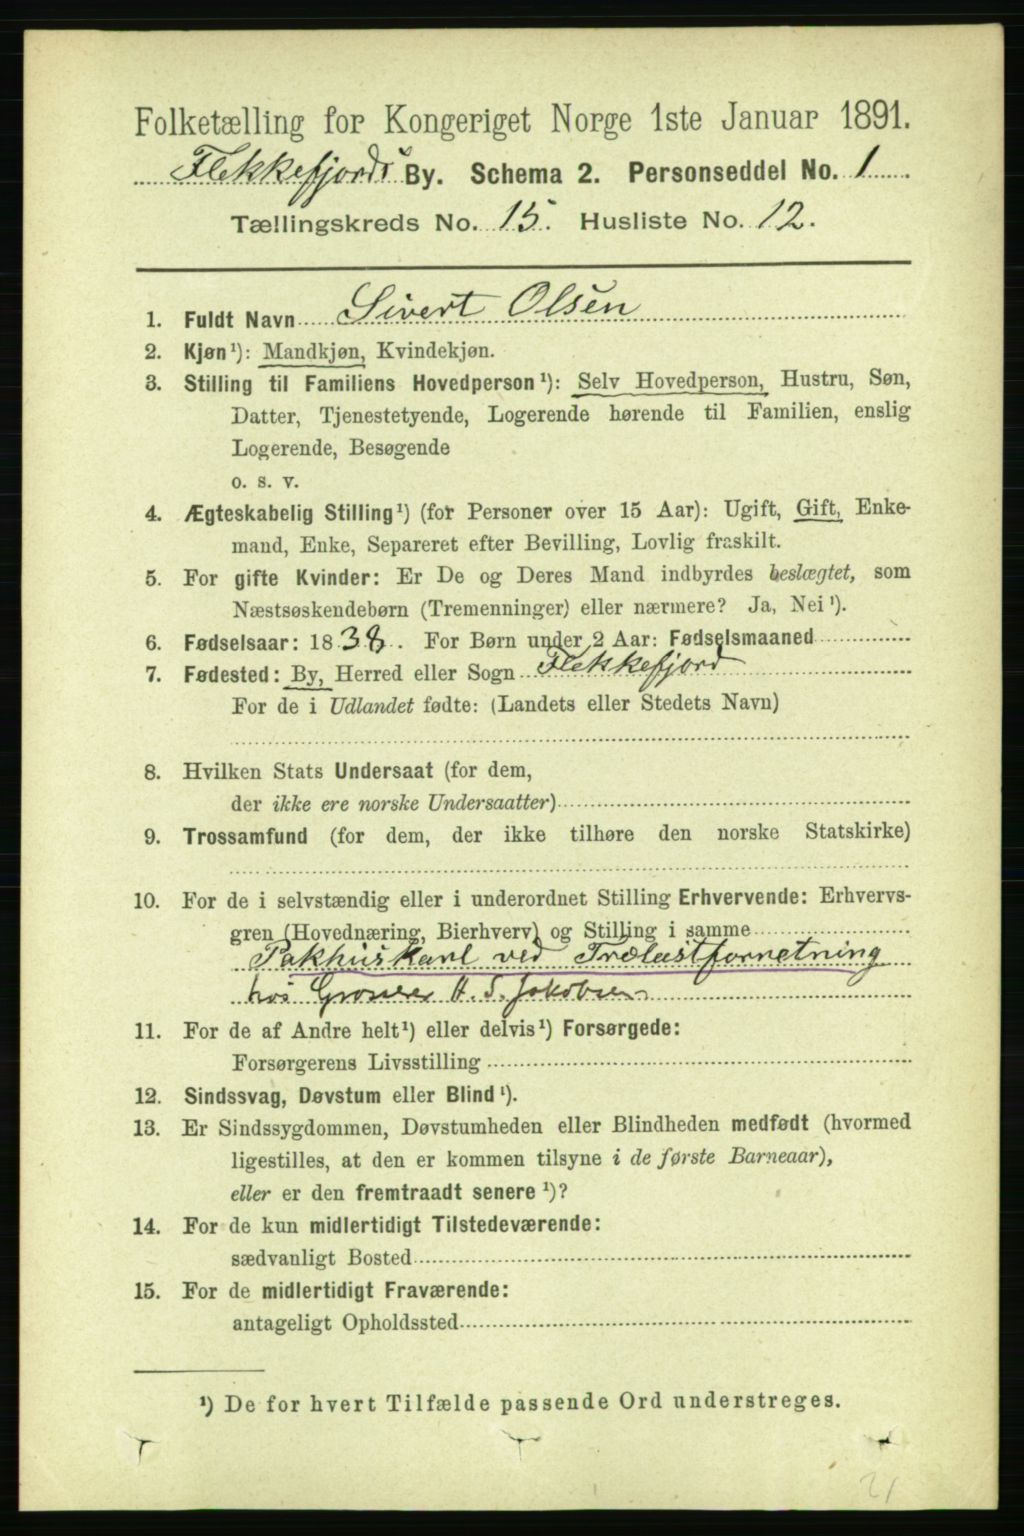 Folketælling for Kongeriget Norge 1ste Januar 1891.
Flekkefjords By. Schema 2. Personseddel No. 1
Tællingskreds No. 15. Husliste No. 12.
1. Fuldt Navn Sivert Olsen
2. Kjøn¹): Mandkjøn, Kvindekjøn.
3. Stilling til Familiens Hovedperson¹): Selv Hovedperson, Hustru, Søn,
Datter, Tjenestetyende, Logerende hørende til Familien, enslig
Logerende, Besøgende
o. s. v.
4. Ægteskabelig Stilling¹) (for Personer over 15 Aar): Ugift, Gift, Enke-
mand, Enke, Separeret efter Bevilling, Lovlig fraskilt.
5. For gifte Kvinder: Er De og Deres Mand indbyrdes beslægtet, som
Næstsøskendebørn (Tremenninger) eller nærmere? Ja, Nei¹).
6. Fødselsaar: 1838. For Børn under 2 Aar: Fødselsmaaned
7. Fødested: By, Herred eller Sogn Flekkefjord
For de i Udlandet fødte: (Landets eller Stedets Navn)
8. Hvilken Stats Undersaat (for dem,
der ikke ere norske Undersaatter)
9. Trossamfund (for dem, der ikke tilhøre den norske Statskirke)
10. For de i selvstændig eller i underordnet Stilling Erhvervende: Erhvervs-
gren (Hovednæring, Bierhverv) og Stilling i samme
Pakhuskarl ved Trælastforretning
hos Grosser H. S. Jakobsen
11. For de af Andre helt¹) eller delvis¹) Forsørgede:
Forsørgerens Livsstilling
12. Sindssvag, Døvstum eller Blind¹).
13. Er Sindssygdommen, Døvstumheden eller Blindheden medfødt (hvormed
ligestilles, at den er kommen tilsyne i de første Barneaar),
eller er den fremtraadt senere¹)?
14. For de kun midlertidigt Tilstedeværende:
sædvanligt Bosted
15. For de midlertidigt Fraværende:
antageligt Opholdssted
¹) De for hvert Tilfælde passende Ord understreges.
21